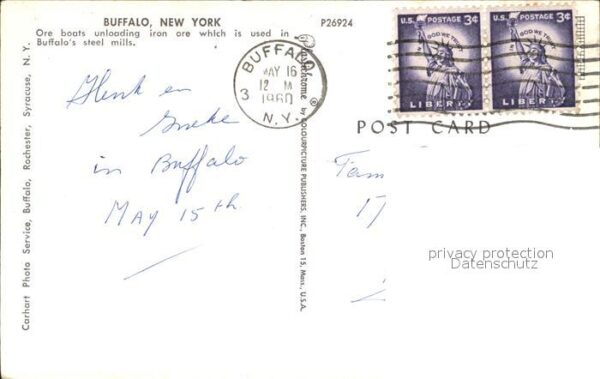 BUFFALO, NEW YORK
P26924
Ore boats unloading iron ore which is used in
Buffalo's steel mills.
Carhart Photo Service, Buffalo, Rochester, Syracuse, N. Y.
by COLOURPICTURE PUBLISHERS, INC., Boston 15, Mass., U.S.A.
BUFFALO,
MAY 16
12 M
1960
3
N.Y.
U.S. POSTAGE 3¢
IN GOD WE TRUST
LIBERTY
U.S. POSTAGE 3¢
IN GOD WE TRUST
LIBERTY
POST CARD
Henk en
in Buffalo
May 15th
Fam
17
privacy protection
Datenschutz